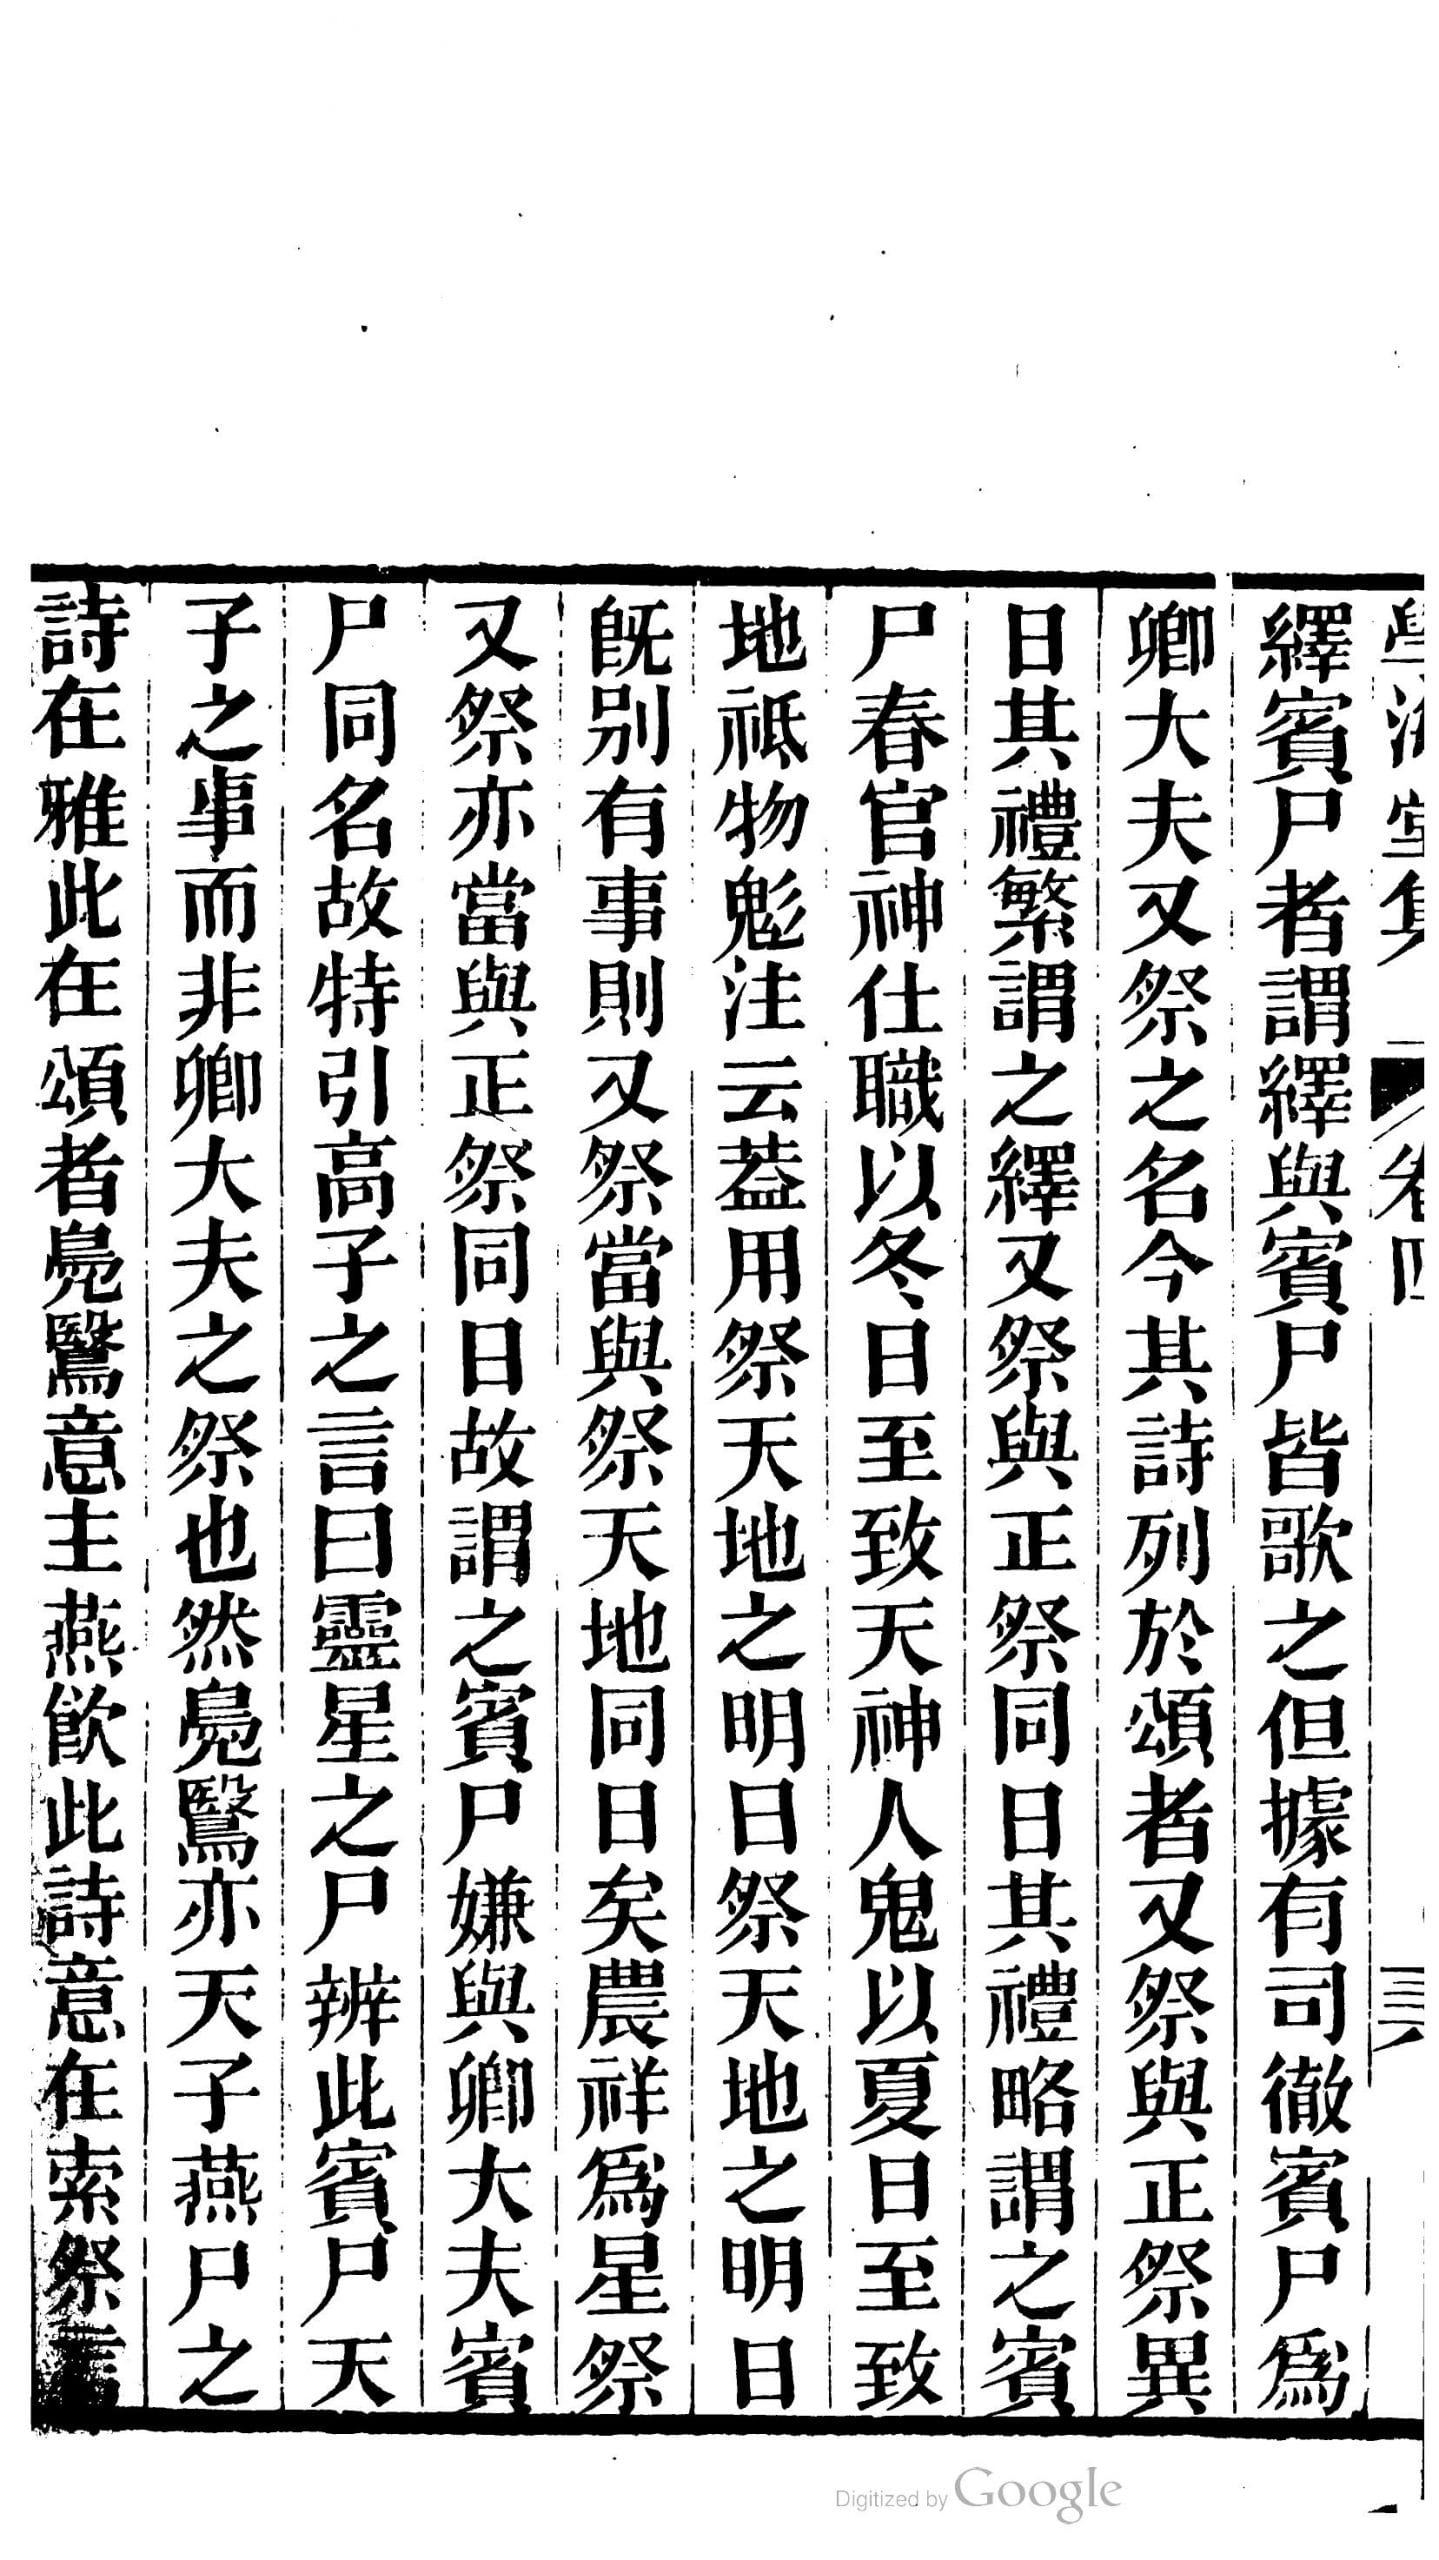 學海堂集 卷四 三
繹賓尸者謂繹與賓尸皆歌之但據有司徹賓尸爲
卿大夫又祭之名今其詩列於頌者又祭與正祭異
日其禮繁謂之繹又祭與正祭同日其禮略謂之賓
尸春官神仕職以冬日至致天神人鬼以夏日至致
地祗物鬽注云葢用祭天地之明日祭天地之明日
旣别有事則又祭當與祭天地同日矣農祥爲星祭
又祭亦當與正祭同日故謂之賓尸嫌與卿大夫賓
尸同名故特引高子之言曰靈星之尸辨此賓尸天
子之事而非卿大夫之祭也然鳧鷖亦天子燕尸之
詩在雅此在頌者鳧鷖意主燕飮此詩意在索祭
Digitized by Google